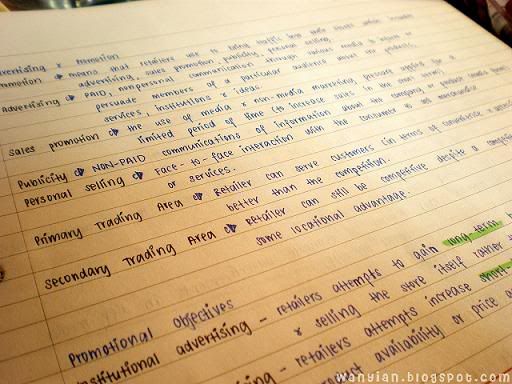 Advertising & Promotion
Promotion → means that retailers use to bring traffic into their stores which includes
advertising, sales promotion, publicity, personal selling.
Advertising → PAID, nonpersonal communication through various media to inform or
persuade members of a particular audience about its products,
services, institutions & ideas.
Sales promotion → the use of media & non-media marketing pressure applied for a
limited period of time (to increase sales in the short term)
Publicity → NON-PAID communications of information about the company or product
Personal selling → Face-to-face interaction with the consumer to sell merchandise
or services.
Primary Trading Area → Retailer can serve customers (in terms of convenience
better than the competition.
Secondary Trading Area → Retailer can still be competitive despite a
some locational advantage.
Promotional objectives
Institutional advertising - retailers attempts to gain long-term
& selling the store itself rather
advertising - retailers attempts increase short-
availability or price
wanyian.blogspot.com